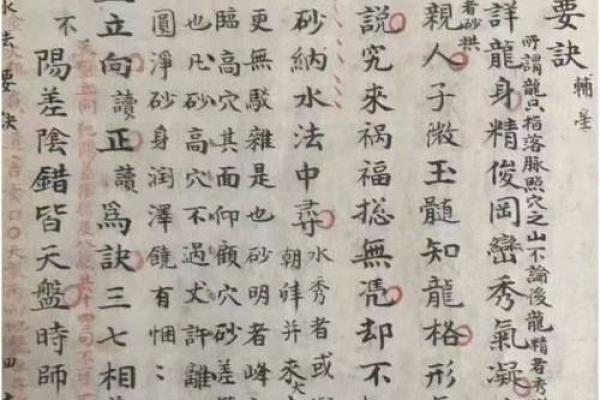 要訣 輔星
所謂龍只指落脈照穴之山不論後龍精者秀
詳龍身精俊岡巒秀氣凝
者砂拱
親人子微玉髓知龍格形
說究來禍福搃無憑却不
砂納水法中尋
水秀者或
并來大
更無駁雜是也砂明者峰
臨高穴其面仰顧穴砂差
也凡砂高穴不過丈許離
圓淨砂身潤澤饒有悃
立向讀正讀為訣三七相
不
陽差陰錯皆天盤時師
水法要訣
四